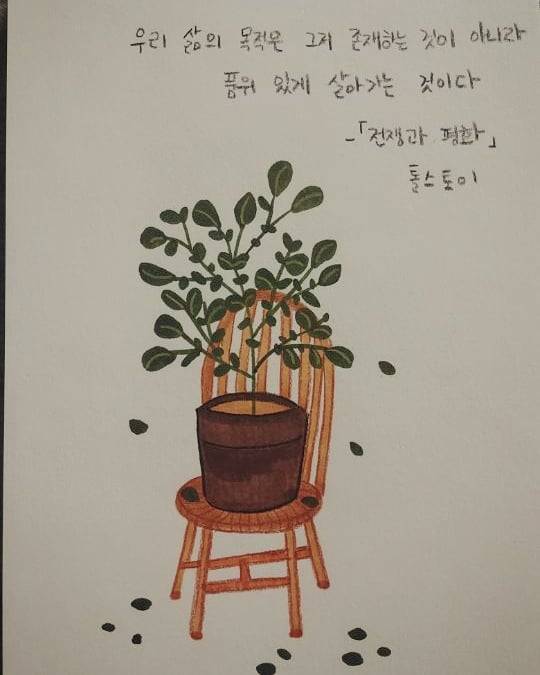 우리 삶의 목적은 그저 존재하는 것이 아니라
품위 있게 살아가는 것이다
-「전쟁과 평화」
톨스토이